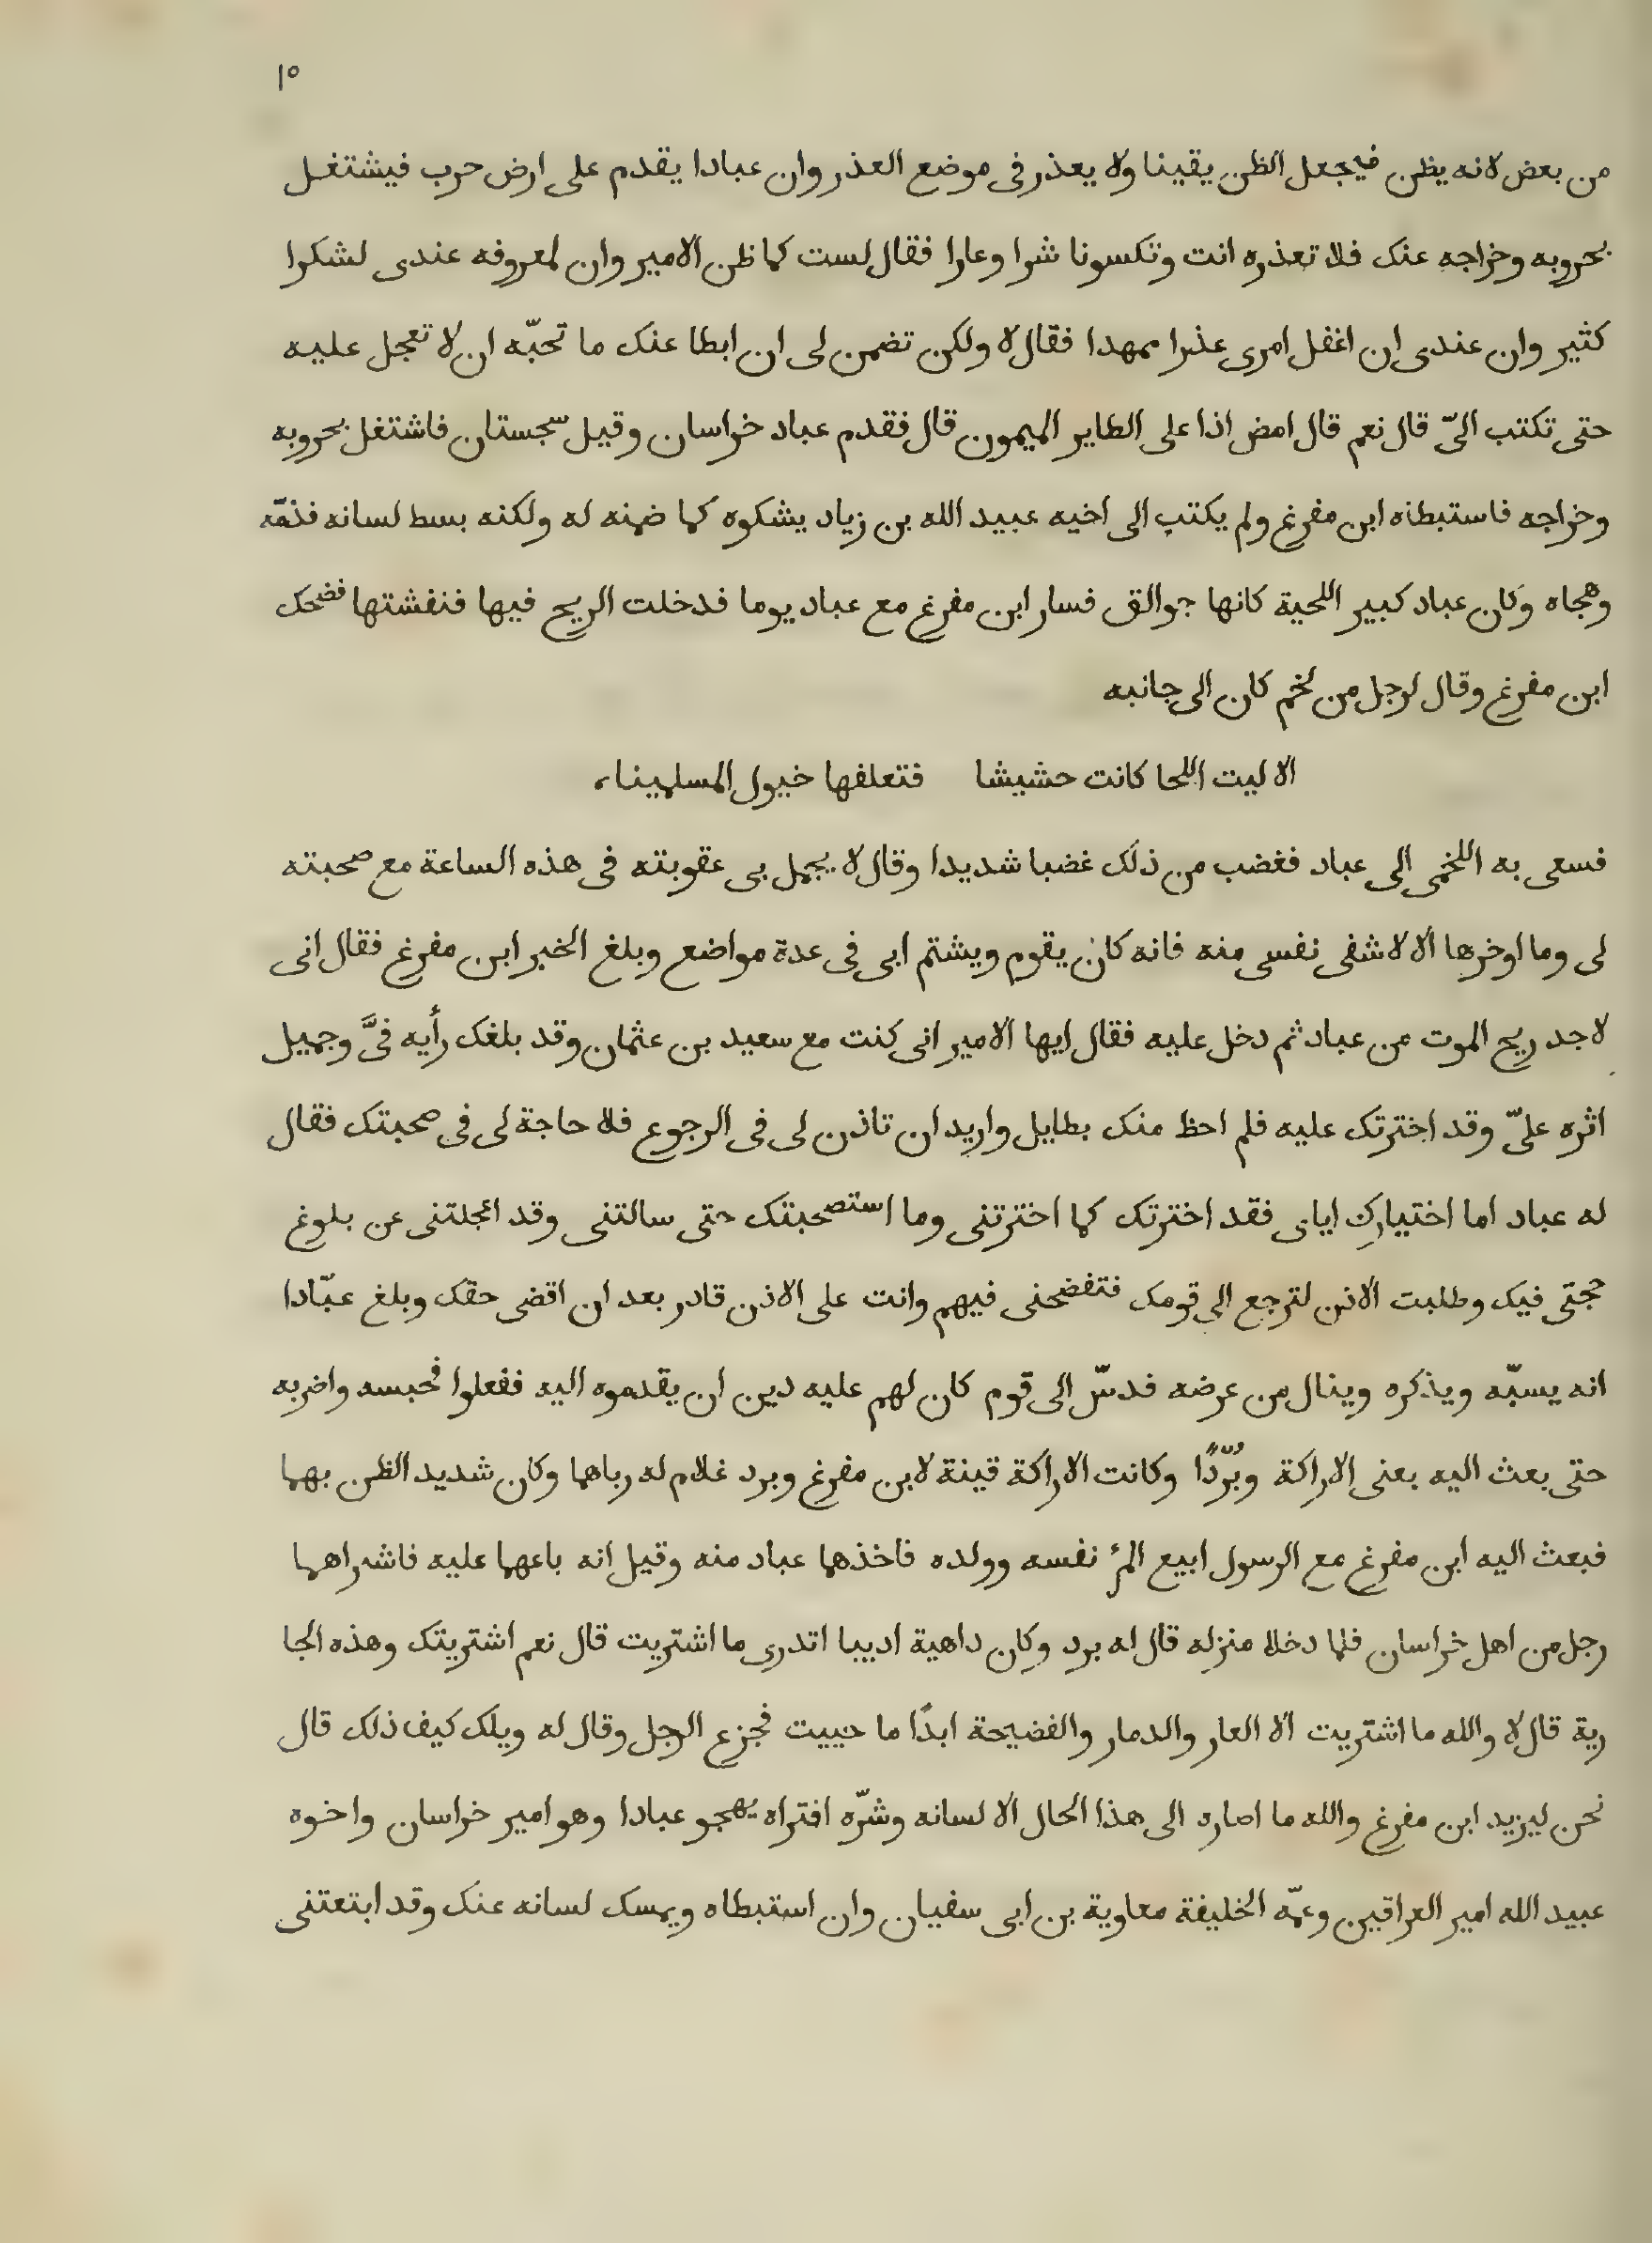 ١٥
من بعض لانه يظن فيجعل الظن يقينا ولا يعذر فى موضع العذر وان عبادا يقدم على ارض حرب فيشتغل
بحروبه وخراجه عنك فلا تعذره انت وتكسونا شرا وعارا فقال لست كما ظن الامير وان لمعروفه عندى لشكرا
كثير وان عندى ان اغفل امرى عذرا ممهدا فقال لا ولكن تضمن لى ان ابطا عنك ما تحبّه ان لا تعجل عليه
حتى تكتب الىّ قال نعم قال امض اذا على الطاير الميمون قال فقدم عباد خراسان وقيل سجستان فاشتغل بحروبه
وخراجه فاستبطاه ابن مفرغ ولم يكتب الى اخيه عبيد الله بن زياد يشكوه كما ضمنه له ولكنه بسط لسانه فذمّه
وهجاه وكان عباد كبير اللحية كانها جوالق فسار ابن مفرغ مع عباد يوما فدخلت الريح فيها فنفشتها فضحك
ابن مفرغ وقال لرجل من لخم كان الى جانبه
الا ليت اللحا كانت حشيشا فتعلفها خيول المسلمينا
فسعى به اللخمى الى عباد فغضب من ذلك غضبا شديدا وقال لا يجمل بى عقوبته فى هذه الساعة مع صحبته
لى وما اوخرها الا لاشفى نفسى منه فانه كان يقوم ويشتم ابى فى عدة مواضع وبلغ الخبر ابن مفرغ فقال انى
لاجد ريح الموت من عباد ثم دخل عليه فقال ايها الامير انى كنت مع سعيد بن عثمان وقد بلغك رأيه فىَّ وجميل
اثره علىّ وقد اخترتك عليه فلم احظ منك بطايل واريد ان تاذن لى فى الرجوع فلا حاجة لى فى صحبتك فقال
له عباد اما اختيارك اياى فقد اخترتك كما اخترتنى وما استصحبتك حتى سالتنى وقد اعجلتنى عن بلوغ
حجتى فيك وطلبت الاذن لترجع الى قومك فتفضحنى فيهم وانت على الاذن قادر بعد ان اقضى حقك وبلغ عبّادا
انه يسبّه ويذكره وينال من عرضه فدسّ الى قوم كان لهم عليه دين ان يقدموه اليه ففعلوا فحبسه واضربه
حتى بعث اليه بعنى الاراكة وبُرّدًا وكانت الاراكة قينة لابن مفرغ وبرد غلام له رباهما وكان شديد الظن بهما
فبعث اليه ابن مفرغ مع الرسول ابيع المرُ نفسه وولده فاخذهما عباد منه وقيل انه باعهما عليه فاشراهما
رجل من اهل خراسان فلما دخلا منزله قال له برد وكان داهية اديبا اتدرى ما اشتريت قال نعم اشتريتك وهذه الجا
رية قال لا والله ما اشتريت الا العار والدمار والفضيحة ابدًا ما حييت فجزع الرجل وقال له ويلك كيف ذلك قال
نحن ليزيد ابن مفرغ والله ما اصاره الى هذا الحال الا لسانه وشرّه افتراه يهجو عبادا وهو امير خراسان واخوه
عبيد الله امير العراقين وعمّه الخليفة معاوية بن ابى سفيان وان استبطاه ويمسك لسانه عنك وقد ابتعتنى